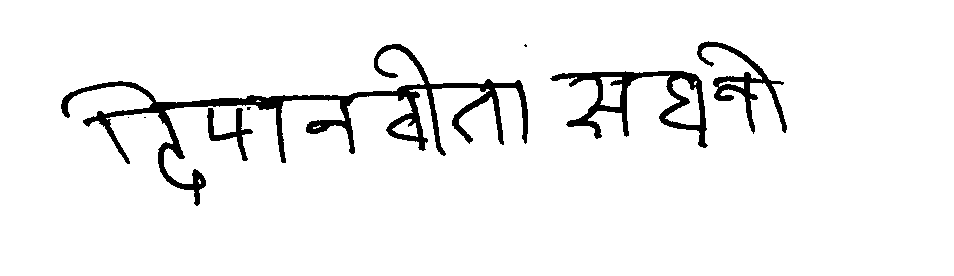 दिपानवीता सघनी